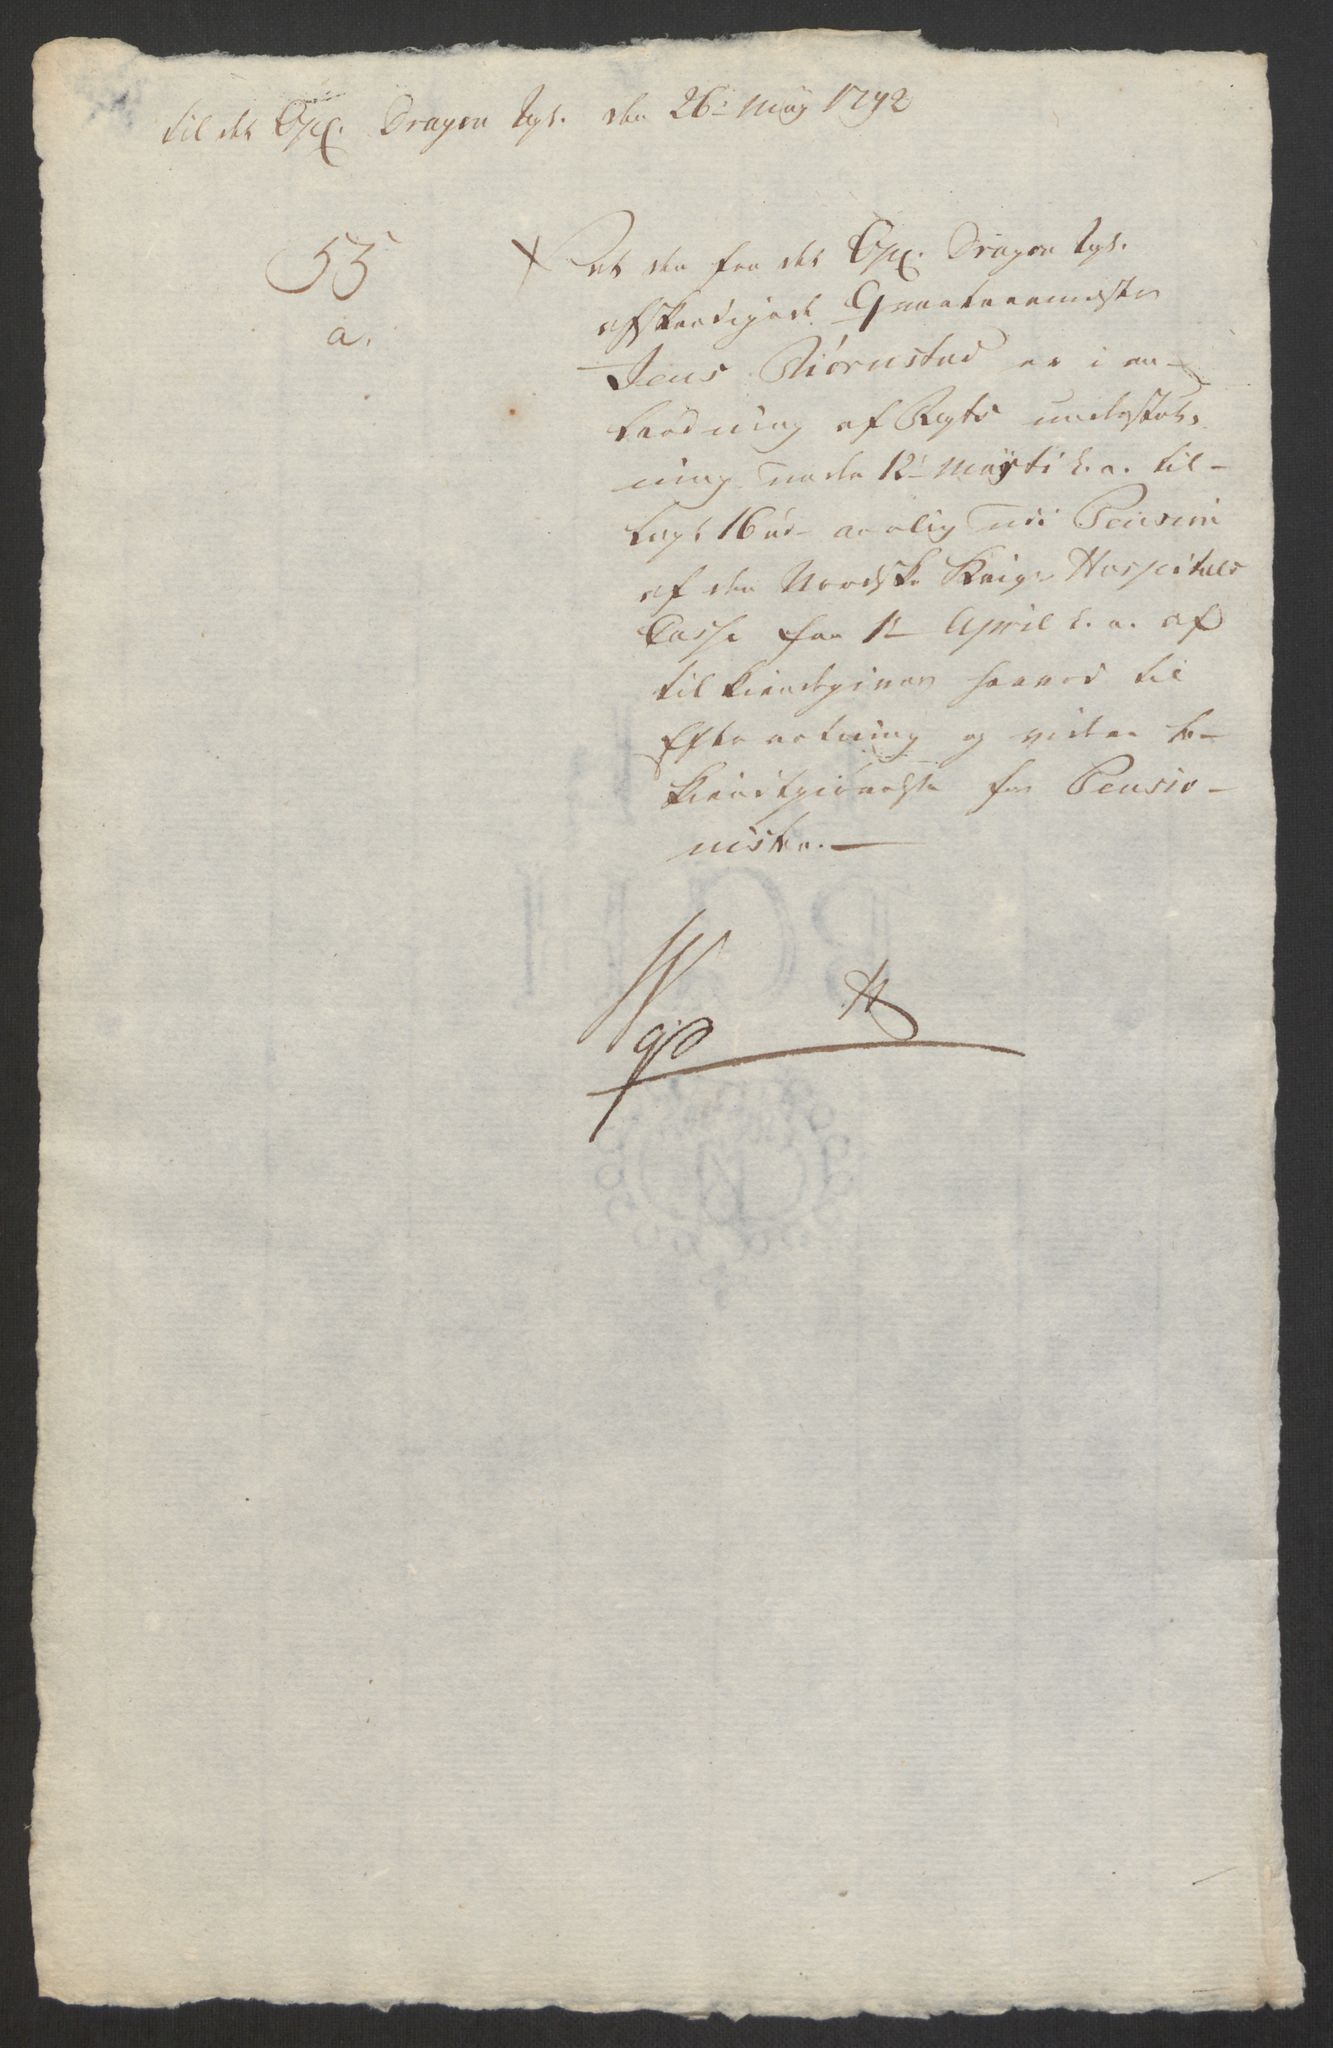 til det Opl. Dragon Rgt. den 26: May 1792
53
a.
At den fra det Opl. Dragon Rgt.
afskeedigede Qvarteermester
Jens Biörnstad er i an-
leedning af Rgts
ning under 12: Marti h. a. til-
lagt 16 rd aarlig udi Pension
af den Norske Krigs Hospitals
Casse fra 1: April h. a. af
til kiendegives herved til
Efterretning og videre be-
kiendtgiörelse for Pensio-
nisten. —